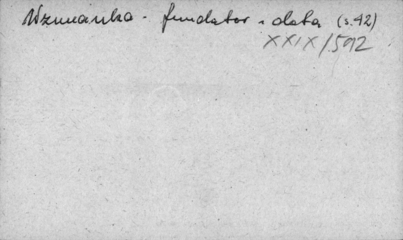 Wzmianka - fundator i data (s. 42)
XXIX/592